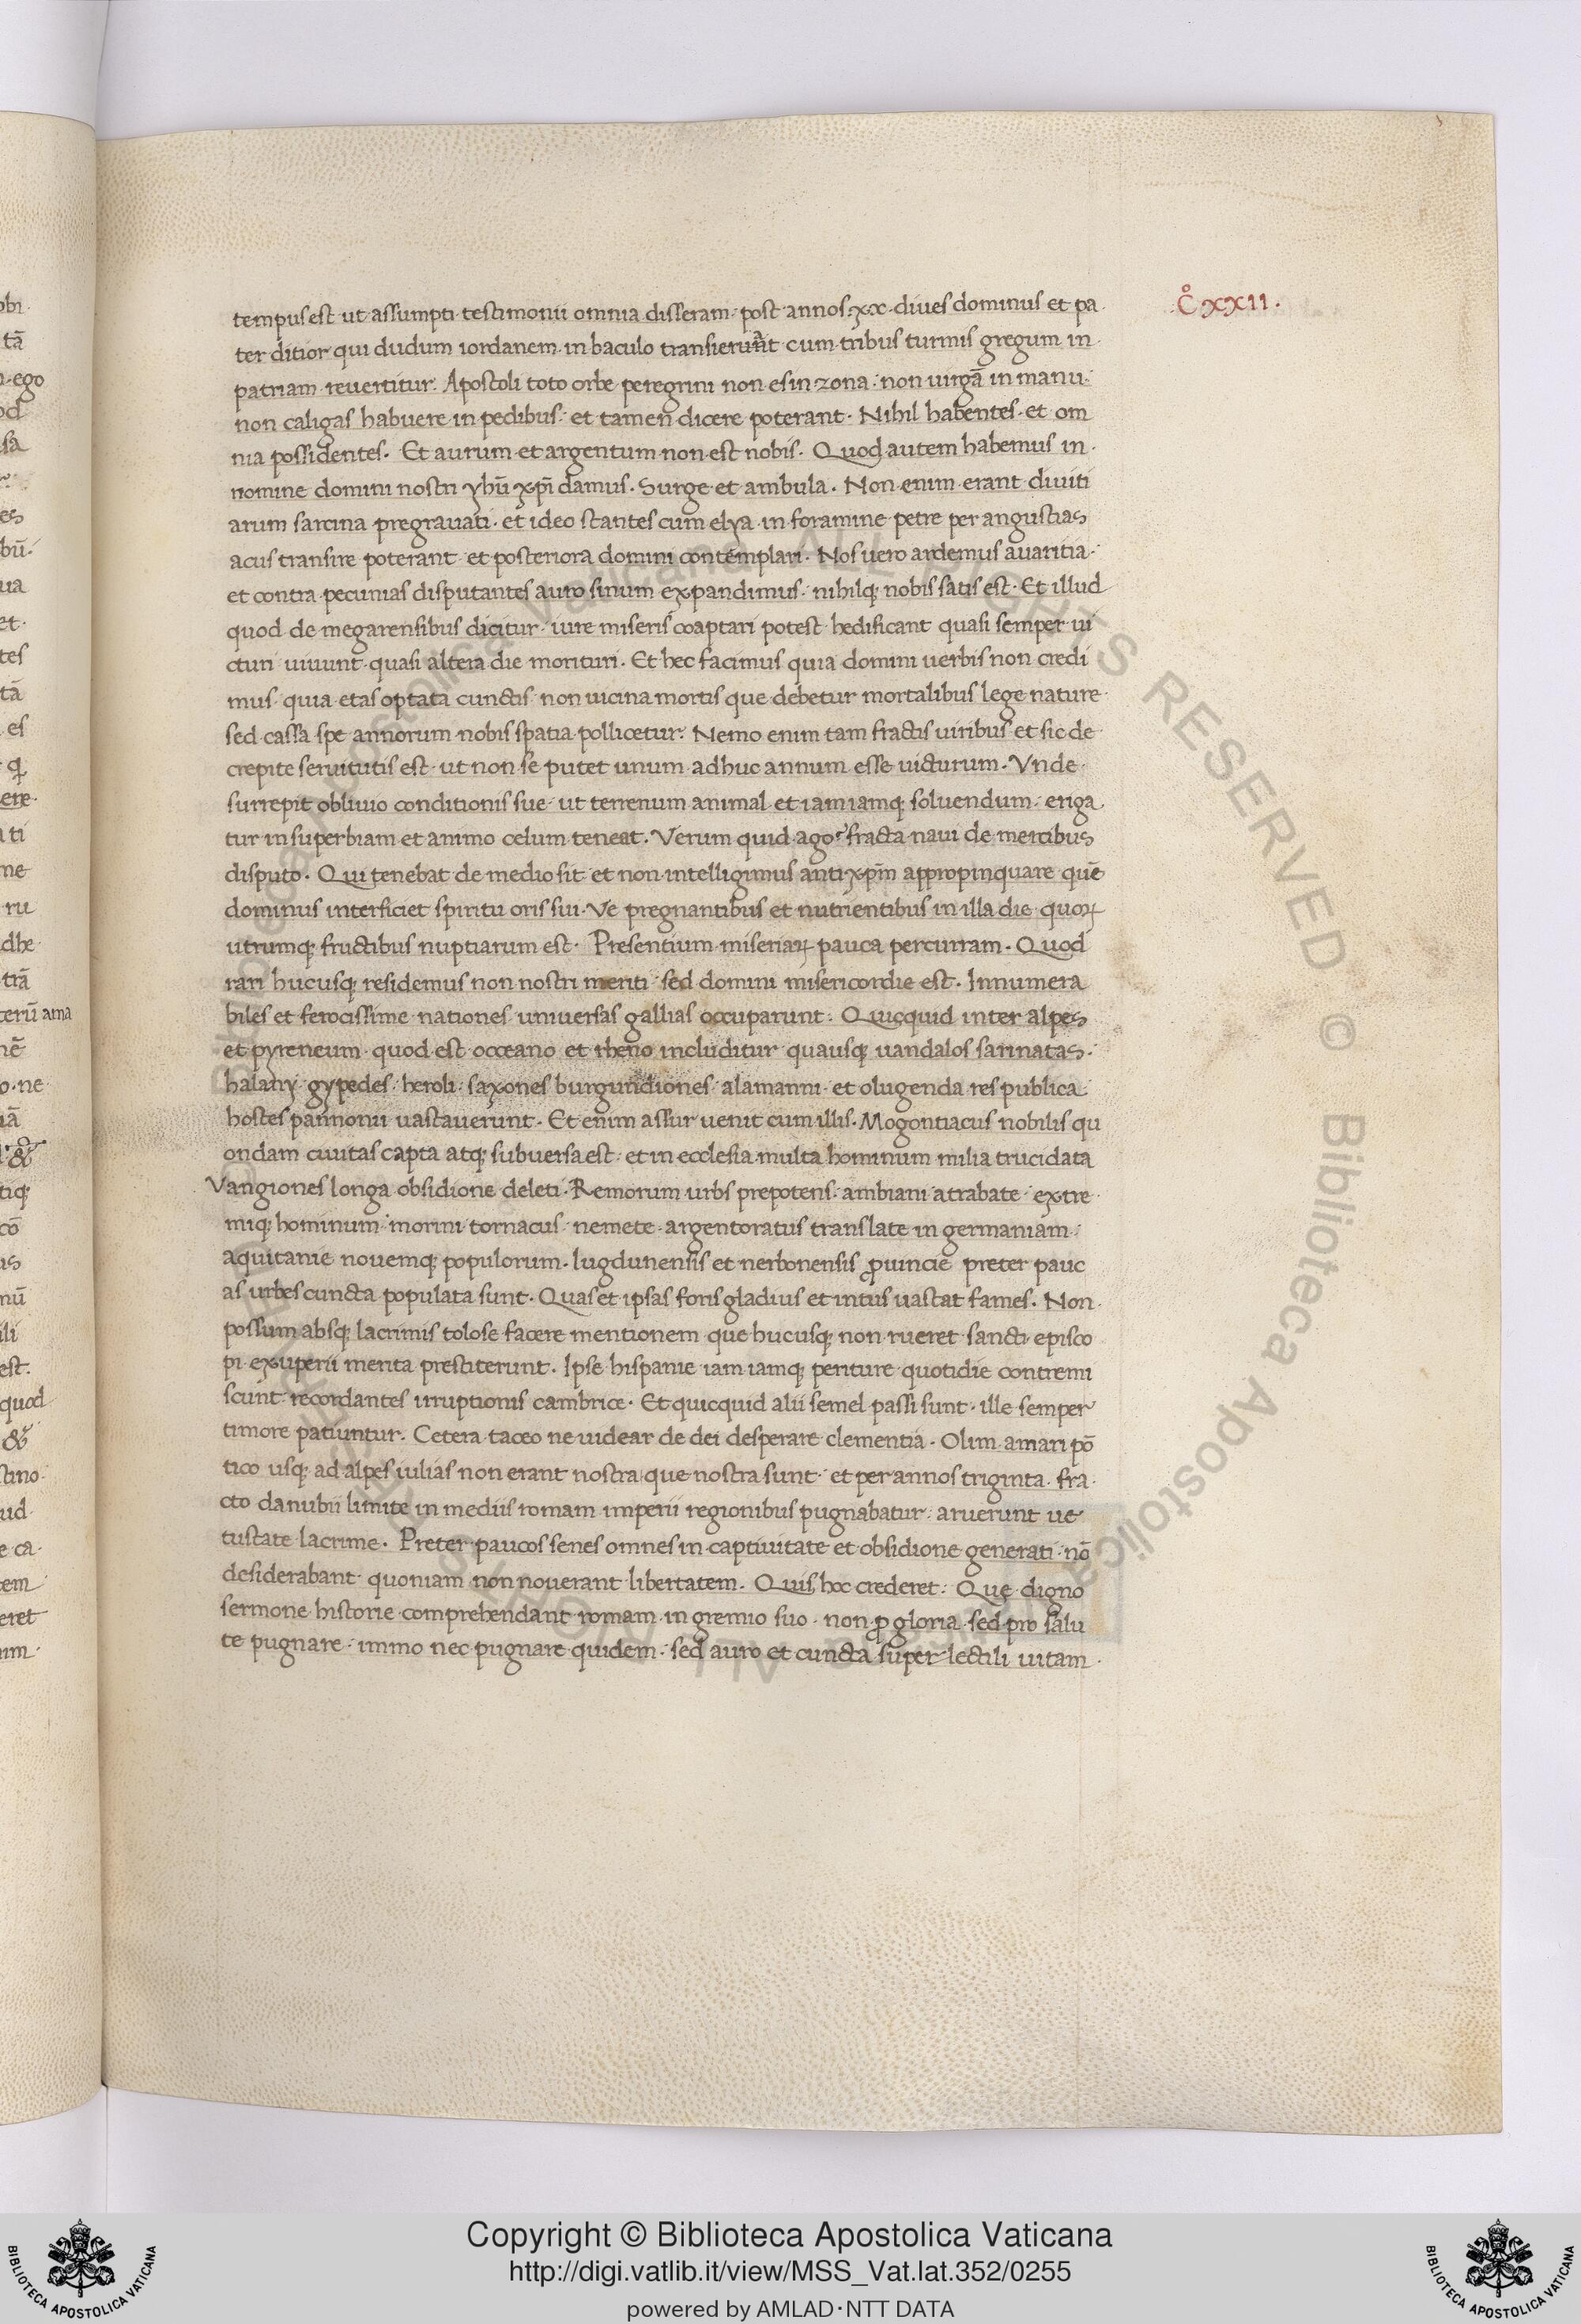 C̊ xxii.
tempus est ut assumpti testimonii omnia disseram. post annos. xx. diues dominus et pa
ter ditior qui dudum iordanem in baculo transierunt cum tribus turmis gregum in
patriam reuertitur. Apostoli toto orbe peregrini non es in zona. non uirgā in manu.
non caligas habuere in pedibus. et tamen dicere poterant. Nihil habentes et om
nia possidentes. Et aurum et argentum non est nobis. Quod autem habemus in
nomine domini nostri yhū xp̄i damus. Surge et ambula. Non enim erant diuiti
arum sarcina pregrauati. et ideo stantes cum elya in foramine petre per angustias
acus transire poterant et posteriora domini contemplari. Nos uero ardemus auaritia.
et contra pecunias disputantes auro sinum expandimus. nihilq; nobis satis est. Et illud
quod de megarensibus dicitur iure miseris coaptari potest hedificant quasi semper ui
cturi uiuunt quasi altera die morituri. Et hec facimus quia domini uerbis non credi
mus quia etas optata cunctis non uicina mortis que debetur mortalibus lege nature
sed cassa spe annorum nobis spatia pollicetur. Nemo enim tam fractis uiribus et sic de
crepite seruitutis est ut non se putet unum adhuc annum esse uicturum. Vnde
surrepit obliuio conditionis sue ut terrenum animal et iam iamq; soluendum. eriga
tur in superbiam et animo celum teneat. Verum quid ago? fracta naui de mercibus
disputo. Qui tenebat de medio fit et non intelligimus anti xp̄m appropinquare quē
dominus interficiet spiritu oris sui. Ve pregnantibus et nutrientibus in illa die quoꝝ
utrumq; fructibus nuptiarum est. Presentium miseriaꝝ pauca percurram. Quod
rari hucusq; residemus non nostri meriti sed domini misericordie est. Innumera
biles et ferocissime nationes uniuersas gallias occuparunt. Quicquid inter alpes
et pyreneum quod est occeano et rheno includitur quausq; uandalos sarmatas.
halany gypedes heroli saxones burgundiones alamanni et olugenda res publica
hostes pannonii uastauerunt. Et enim assur uenit cum illis. Mogontiacus nobilis qu
ondam ciuitas capta atq; subuersa est. et in ecclesia multa hominum milia trucidata
Vangiones longa obsidione deleti. Remorum urbs prepotens. ambiani atrabate extre
miq; hominum morini tornacus nemete argentoratus translate in germaniam.
aquitanie nouemq; populorum. lugdunensis et nerbonensis ꝓuincie preter pauc
as urbes cuncta populata sunt. Quas et ipsas foris gladius et intus uastat fames. Non
possum absq; lacrimis tolose facere mentionem que hucusq; non rueret sancti episco
pi exuperii merita prestiterunt. Ipse hispanie iam iamq; periture quotidie contremi
scunt recordantes irruptionis cambrice. Et quicquid alii semel passi sunt. ille semper
timore patiuntur. Cetera taceo ne uidear de dei desperare clementia. Olim amari pō
tico usq; ad alpes iulias non erant nostra que nostra sunt et per annos triginta. fra
cto danubii limite in mediis romam imperii regionibus pugnabatur. aruerunt ue
tustate lacrime. Preter paucos senes omnes in captiuitate et obsidione generati nō
desiderabant quoniam non nouerant libertatem. Quis hoc crederet. Que digno
sermone historie comprehendant romam in gremio suo non ꝓ gloria sed pro salu
te pugnare. immo nec pugnare quidem. sed auro et cuncta super lectili uitam
Copyright © Biblioteca Apostolica Vaticana
http://digi.vatlib.it/view/MSS_Vat.lat.352/0255
powered by AMLAD·NTT DATA
BIBLIOTECA APOSTOLICA VATICANA
BIBLIOTECA APOSTOLICA VATICANA